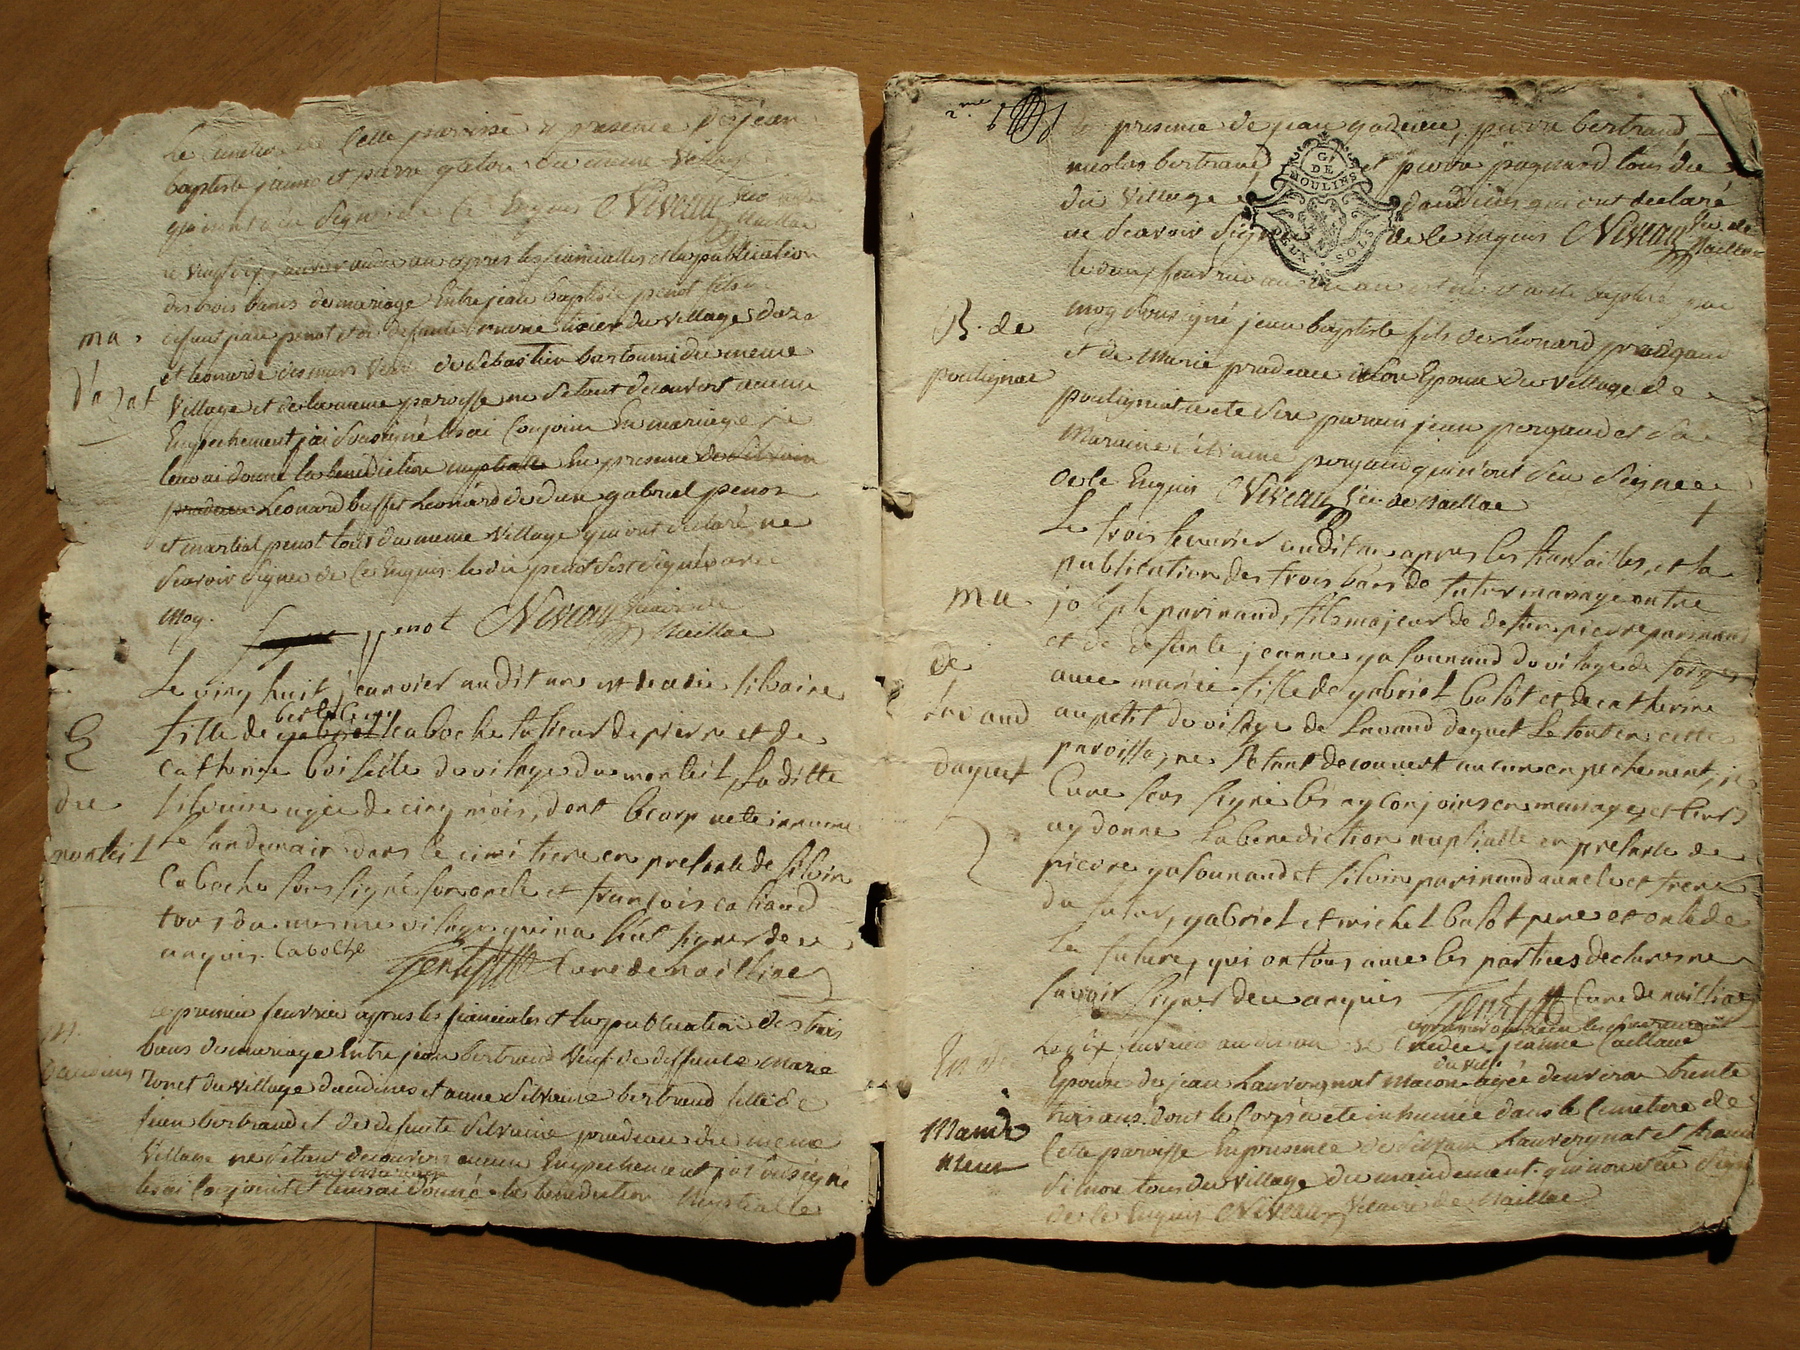 Le Cimetiere de Cette paroisse en presence des jean
baptiste jaune et pierre du meme Village
qui nont sceu Signer de Ce Enquis Niveau Vic. de
Naillac
le Vingt janvier audit an apres les fiancailles et la publication
des trois bans de mariage Entre jean baptiste penot fils de
defunt jean penot et de defunte marie du Village daza
et leonarde des mars Veuve de Sebastien bartoumi du meme
ma.
d'azat
Village et de la meme paroisse ne Setant decouvert aucun
Empechement j'ai Sousigné les ai Conjoint En mariage et
leur ai donné la benediction nuptialle En presence de Silvain
pradeau Leonard buffet Leonard dedun gabriel penot
et martial penot tous du meme Village qui ont declaré ne
Scavoir Signer de Ce Enquis le dit penot Sest Signé avec
Moy.
penot Niveau Vicaire de
Naillac
E
du
monteil
Le vingt huit janvier audit an est decedée silvaine
barthelemi
fille de gabriel Caboche tailleur de pierre et de
Catherine boisselle du vilage du monteil, la ditte
silvaine agée de cinq mois, dont le corp a eté innumé
le landemain dans le cimitiere en presence de silvin
Caboche sous signé son oncle et françois caliaud
tous du mesme vilage qui na sceut signer de ce
anquis. Caboche Curé de naillac
M.
daudines
le premier feuvrier apres les fiancailles et la publication des trois
bans de mariage Entre jean bertrand Veuf de deffunte Marie
du Village daudines et anne Silvaine bertrand fille de
jean bertrand et de defunte Silvaine pradeau du meme
Village ne Setant decouvert aucun Empechement j'ai Sousigné
les ai Conjoint et leur ai donné la benediction Nuptialle
2.me
En presence de jean gadieu, pierre bertrand
nicolas bertrand et pierre paquard tous du
du Village daudines qui ont declaré
ne Scavoir Signer de Ce Enquis Niveau Vic. de
Naillac
G. DE MOULINS
DEUX SOLS
B. de
poulignac
le deux feuvrier audit an est né et a eté baptisé par
moy Sousigné jean baptiste fils de Léonard pergaud
et de Marie pradeau Son Epouse du Village de
poulignac a eté Son parain jean pergaud et Sa
Maraine Etienne pergaud qui n'ont Seu Signer
de Ce Enquis Niveau Vic. de Naillac
ma
de
Lavaud
duquet
Le trois feuvrier audit an apres les fiansailles, et la
publication des trois bans de futur mariage entre
joseph parinaud, fils majeur de defunt pierre parinaud
et de defunte jeanne gasounaud du vilage de forges
avec marie fille de gabriel balot et de catherine
aupetit du vilage de Lavaud duguet le tout en cette
paroisse, ne setant decouvert aucun enpechement, je
Curé sous signé les ay conjoins en mariage et leurs
ay donné la benediction nuptialle en presence de
pierre gasounaud et silvin parinaud oncle et frere
du futur, gabriel et michel balot pere et oncle de
la future, qui on tous avec les parties declarés ne
savoir signer de ce anquis Curé de naillac
Ent.
Mande
ment
Le dix feuvrier audit an Est decedée jeanne Caillaud
Epouse de jean Lauvergnat Macon agée denviron trente
trois ans dont le Corps a eté inhumée dans le Cimetiere de
Cette paroisse En presence de Silvain Lauvergnat et
Simon tous du Village du mandement. qui nont Seu Signer
de Ce Enquis Niveau Vicaire de Naillac